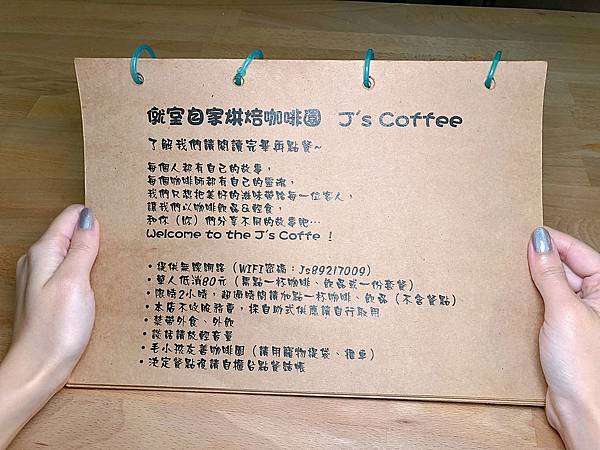 僦室自家烘焙咖啡圖 J's Coffee
了解我們請閱讀完畢再點餐~
每個人都有自己的故事，
每個咖啡師都有自己的靈魂，
我們只想把美好的滋味帶給每一位客人，
讓我們以咖啡飲品&輕食，
和你（妳）們分享不同的故事吧…
Welcome to the J's Coffe !
・提供無線網路（WIFI密碼：Js89217009）
・單人低消80元（需點一杯咖啡、飲品或一份套餐）
・限時2小時，超過時間請加點一杯咖啡、飲品（不含餐點）
・本店不收服務費，採自助式供應請自行取用
・禁帶外食、外飲
・談話請放輕音量
・毛小孩友善咖啡圖（請用寵物提袋、推車）
・決定餐點後請自櫃台點餐結帳